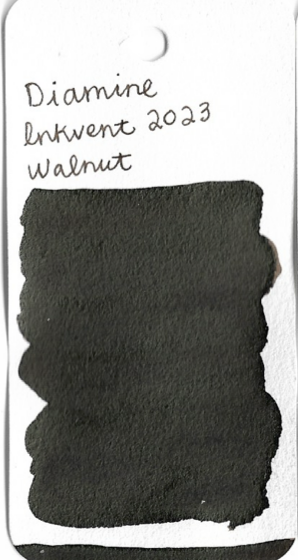 Diamine
Inkvent 2023
Walnut